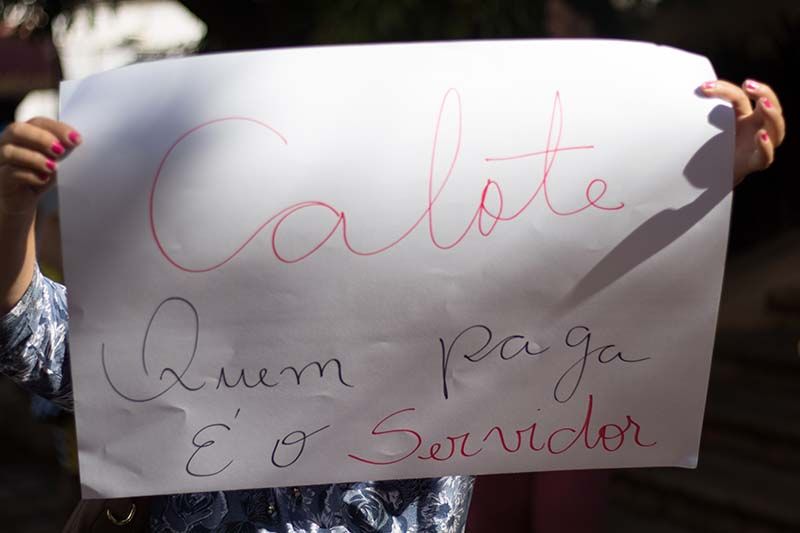 Calote
Quem paga
É o Servidor